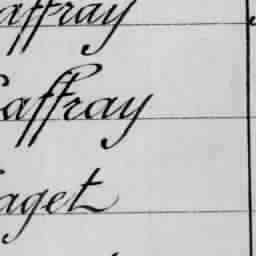 affray
affray
aget